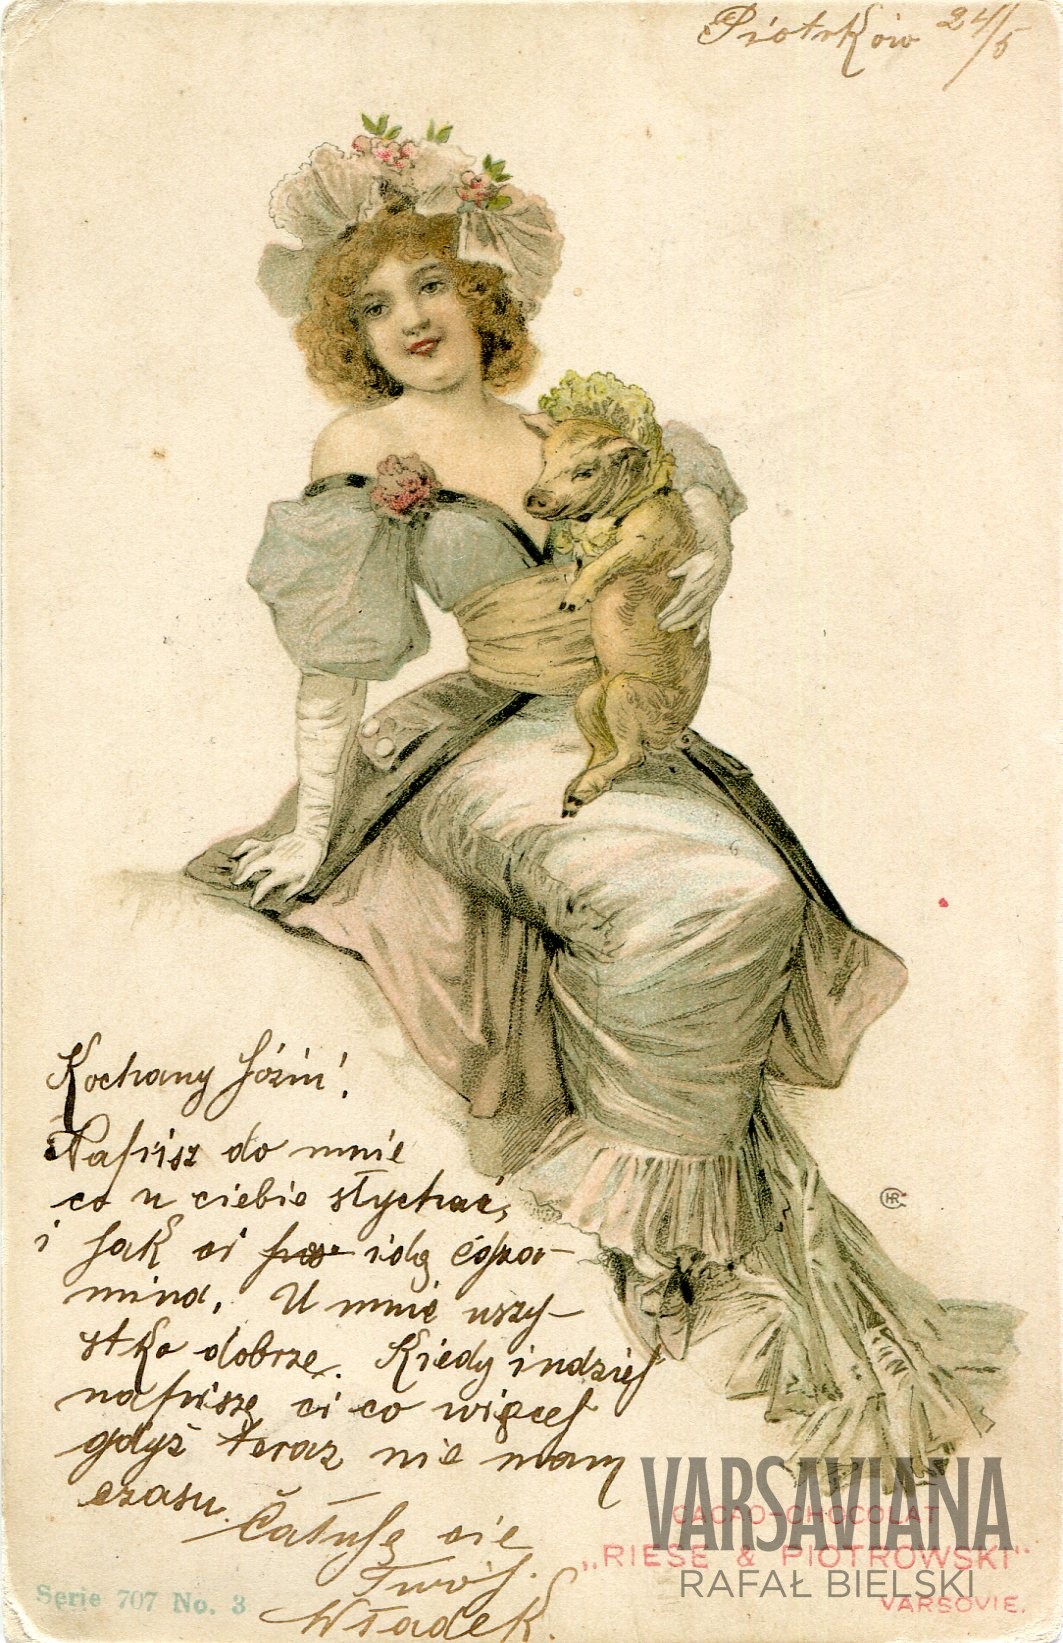 Piotrków 24/5
Kochany Józiu!
Napisz do mnie
co u ciebie słychać,
i jak ci idą egza-
mina. U mnie wszy-
stko dobrze. Kiedyindziej
napiszę ci co więcej
gdyż teraz nie mam
czasu.
Całuję cię
Twój.
Władek.
HR
Serie 707 No. 3
CACAO-CHOCOLAT
„RIESE & PIOTROWSKI"
VARSOVIE.
VARSAVIANA
RAFAŁ BIELSKI